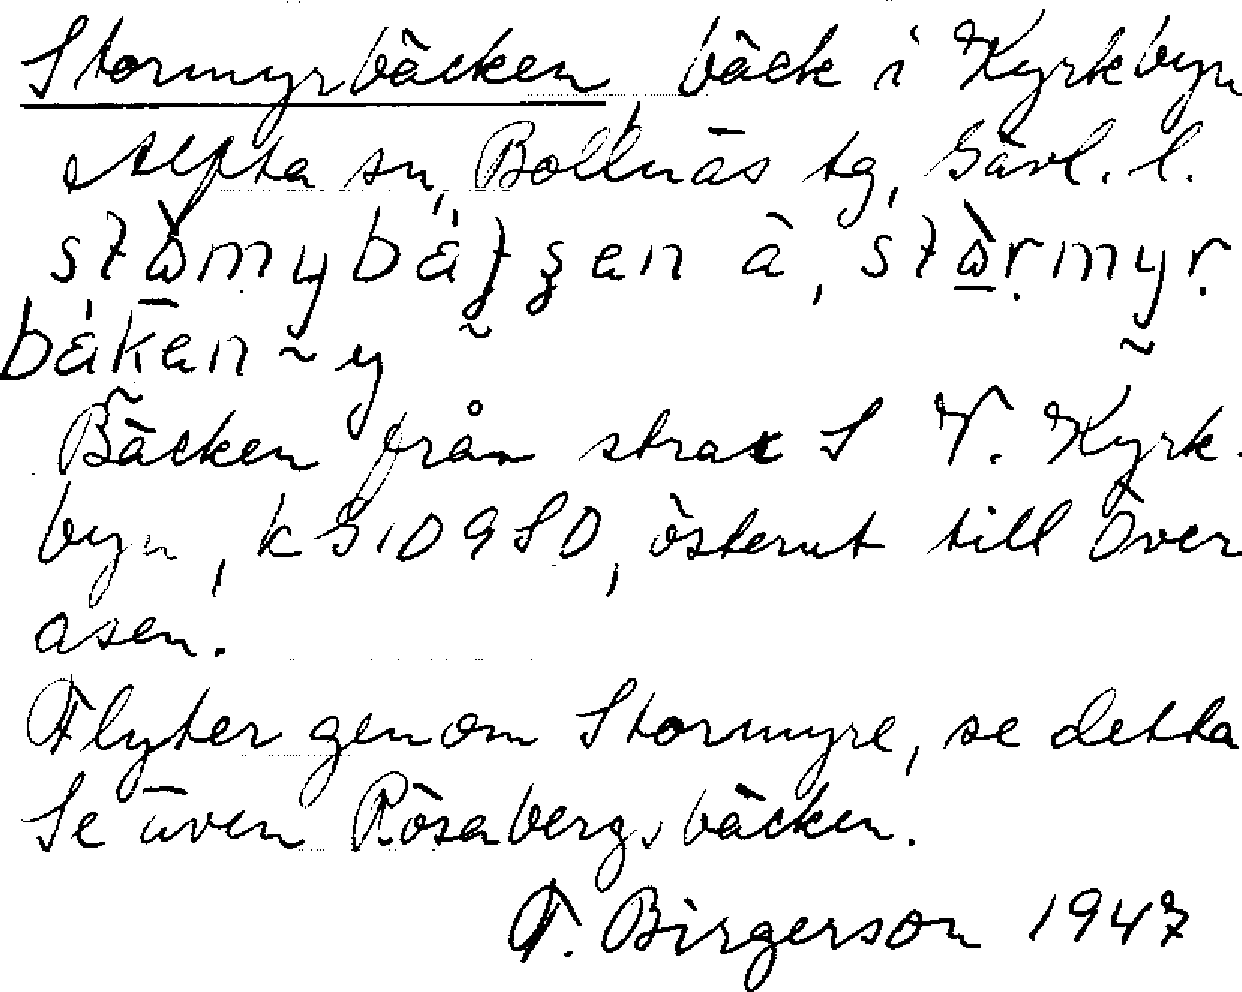 Stormyrbäcken, bäck i Kyrkbyn
Alfta sn, Bollnäs tg, Gävl. l.
à,
Bäcken från strax S V. Kyrk-
byn, k G1D9SD, österut till Över
åsen.
Flyter genom Stormyre, se detta
Se även Rösabergsbäcken.
F. Birgerson 1947